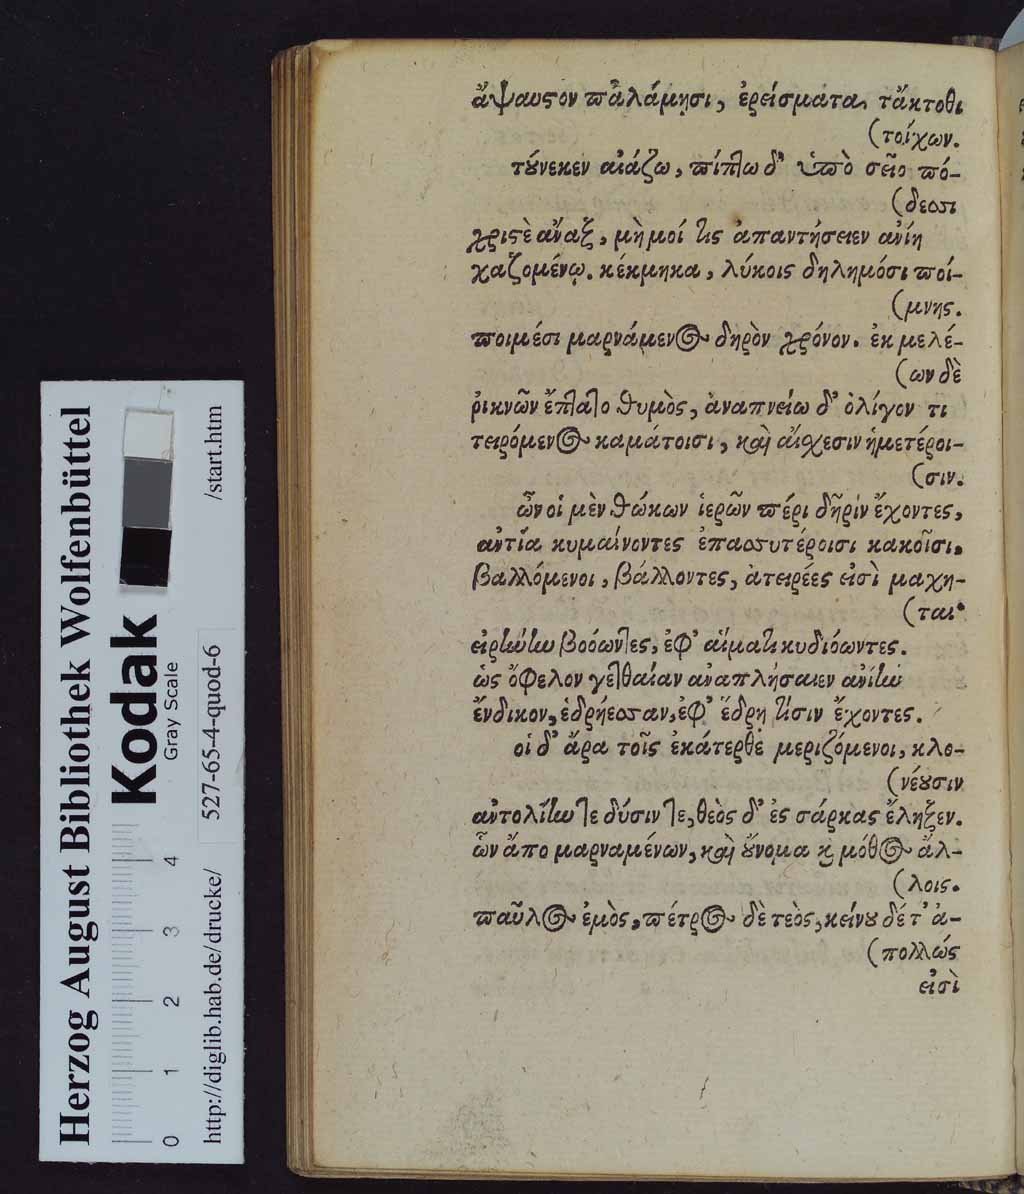 ἄψαυστον παλάμησι, ἐρείσματα τἄκτοθι
(τοίχων.
τούνεκεν αἰάζω, πίπτω δ' ὑπὸ σεῖο πό-
(δεσσι
χριστὲ ἄναξ, μὴ μοί τις ἀπαντήσειεν ἀνίη
χαζομένῳ. κέκμηκα, λύκοις δηλημόσι ποί-
(μνης.
ποιμέσι μαρνάμενος δηρὸν χρόνον. ἐκ μελέ-
(ων δὲ
ῥικνῶν ἔπτατο θυμὸς, ἀναπνείω δ' ὀλίγον τι
τειρόμενος καμάτοισι, καὶ αἴσχεσιν ἡμετέροι-
(σιν.
ὧν οἱ μὲν θώκων ἱερῶν πέρι δῆριν ἔχοντες,
ἀντία κυμαίνοντες ἐπασσυτέροισι κακοῖσι.
βαλλόμενοι, βάλλοντες, ἀτειρέες εἰσὶ μαχη-
(ταί·
εἰρήνην βοόωντες, ἐφ' αἵματι κυδιόωντες.
ὡς ὄφελον γετθαίαν ἀναπλήσαιεν ἀνίην
ἔνδικον, ἑδρήεσσαν, ἐφ' ἕδρη τίσιν ἔχοντες.
οἱ δ' ἄρα τοῖς ἑκάτερθε μεριζόμενοι, κλο-
(νέουσιν
ἀντολίην τε δύσιν τε, θεὸς δ' ἐς σάρκας ἔληξεν.
ὧν ἄπο μαρναμένων, καὶ οὔνομα καὶ μόθος ἄλ-
(λοις.
παῦλος ἐμὸς, πέτρος δὲ τεὸς, κείνου δέ τ' ἀ-
(πολλώς
εἰσὶ
Herzog August Bibliothek Wolfenbüttel
Kodak
Gray Scale
0 1 2 3 4
http://diglib.hab.de/drucke/ 527-65-4-quod-6 /start.htm